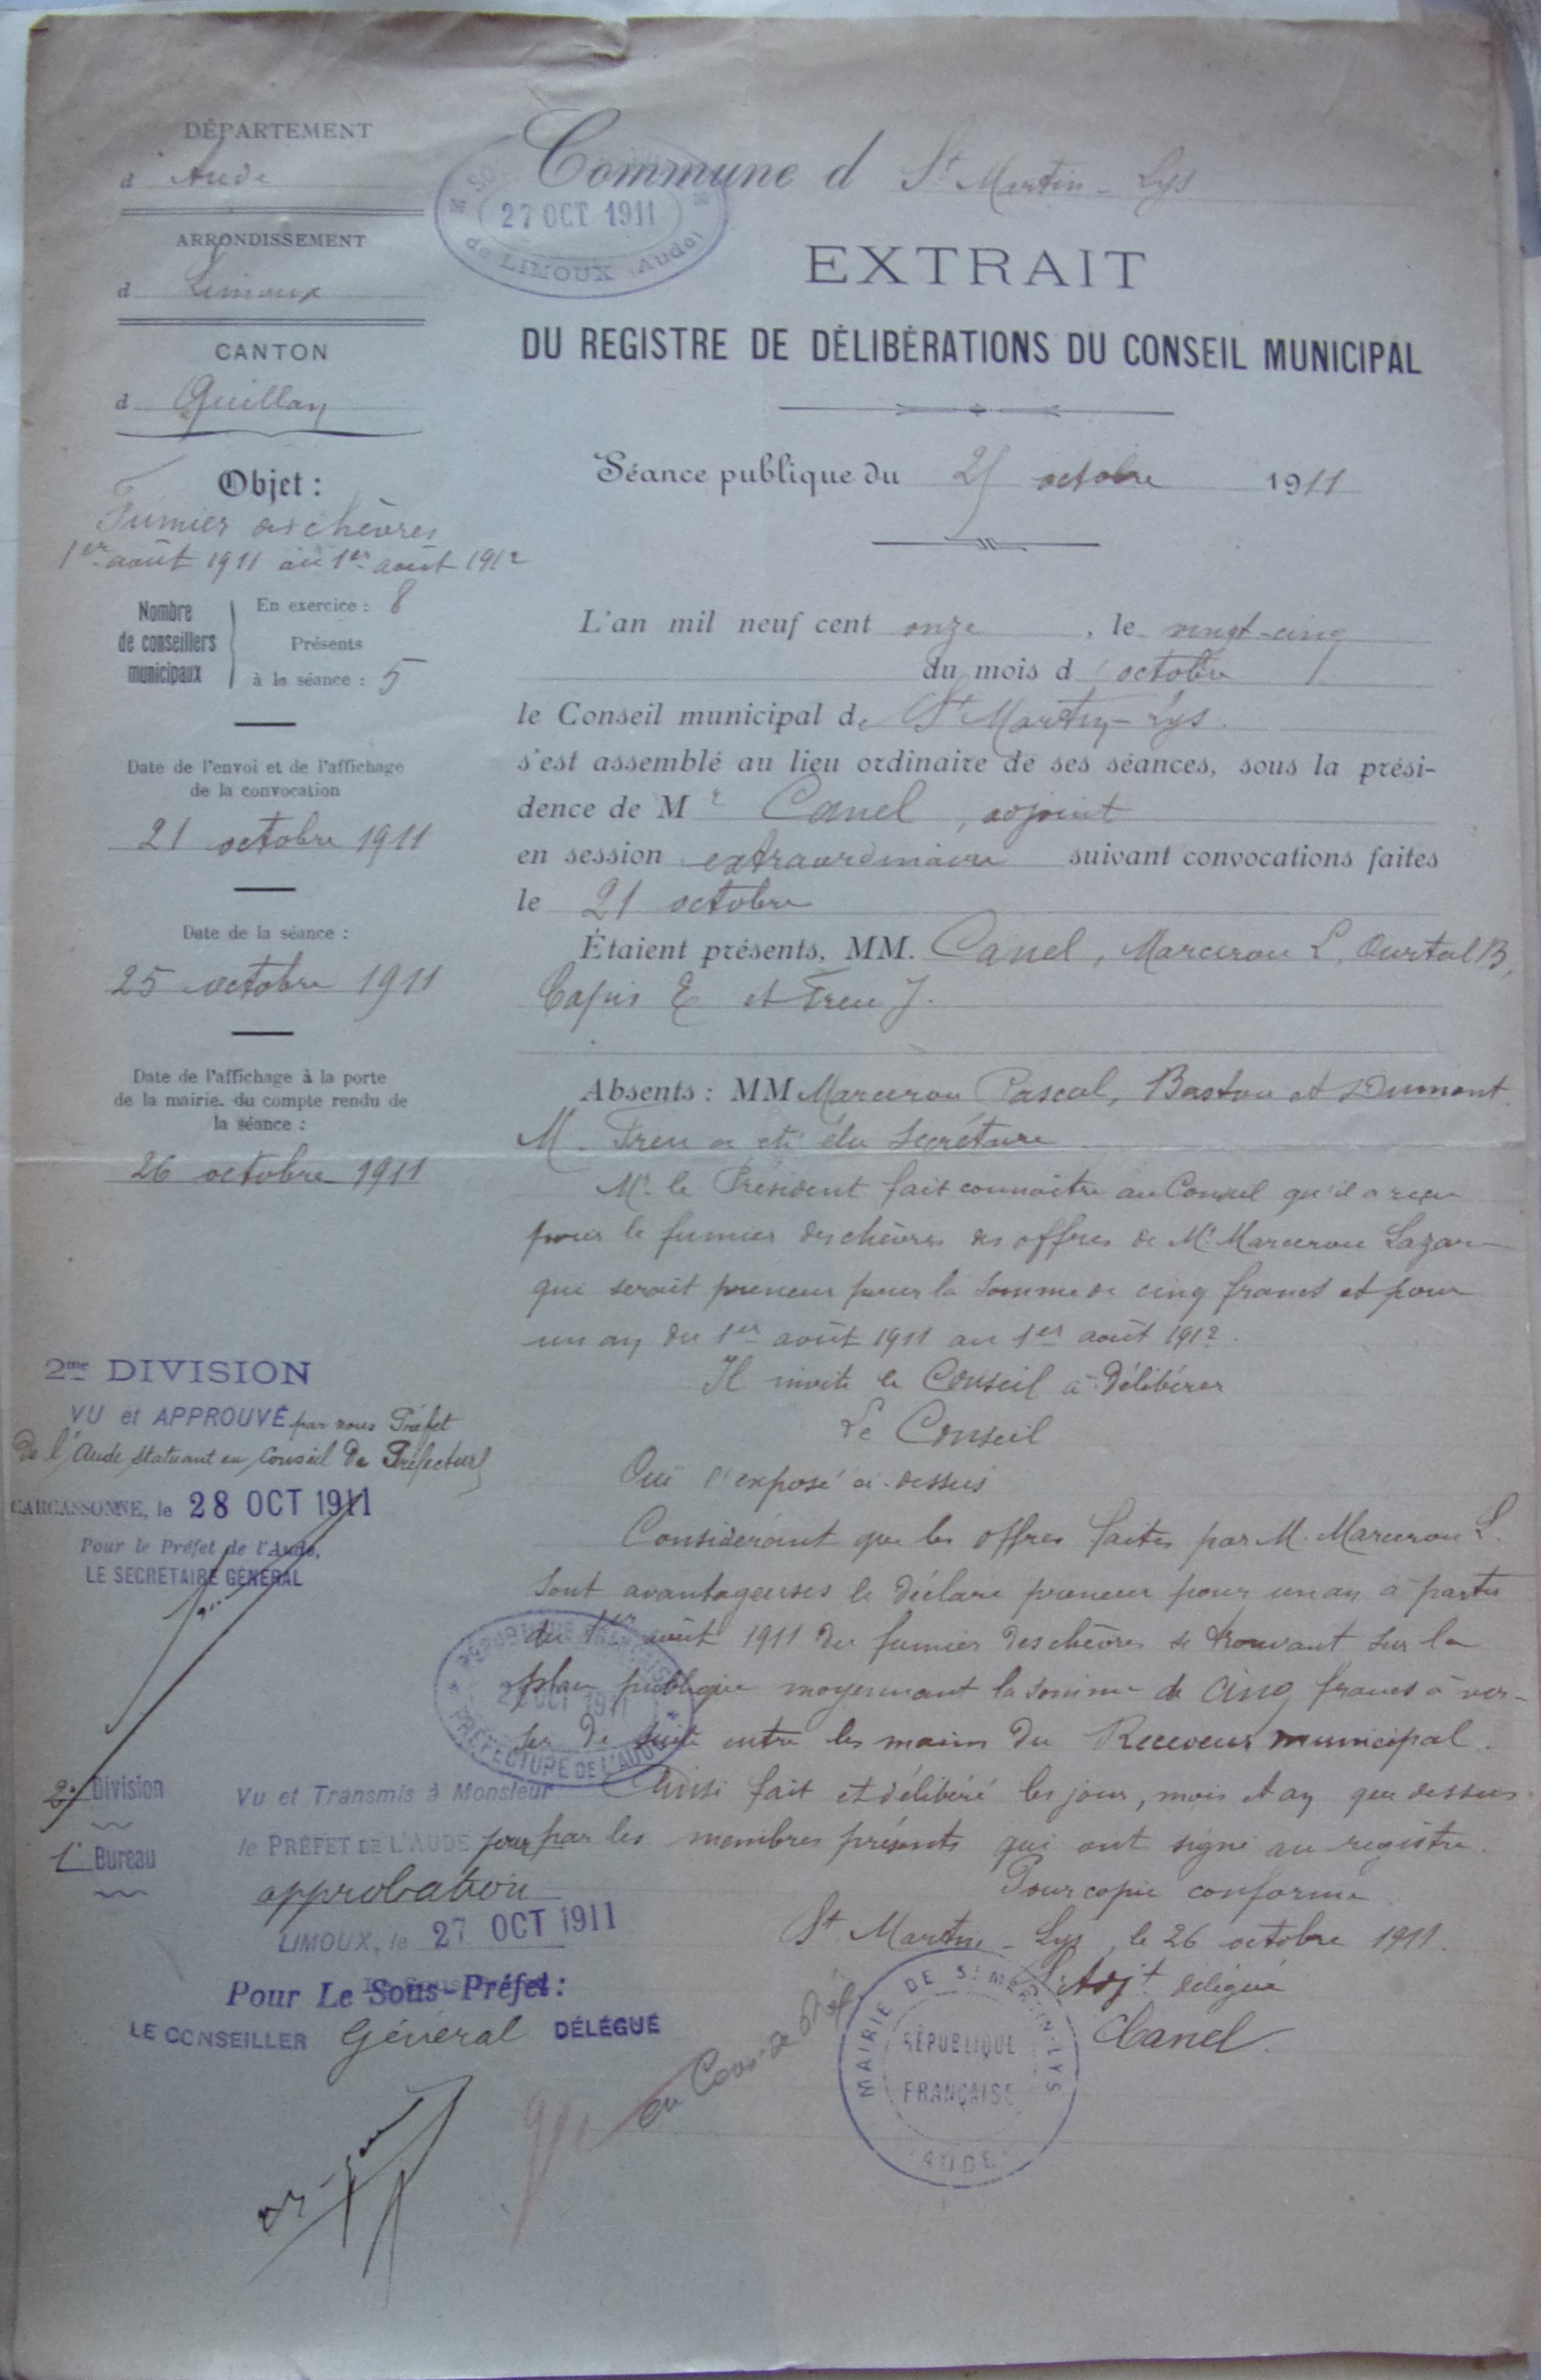 DÉPARTEMENT
d Aude
ARRONDISSEMENT
d Limoux
CANTON
d Quillan
Objet :
Fumier des chèvres
1er août 1911 au 1er août 1912
Nombre de conseillers municipaux
En exercice : 8
Présents
à la séance : 5
Date de l'envoi et de l'affichage
de la convocation
21 octobre 1911
Date de la séance :
25 octobre 1911
Date de l'affichage à la porte
de la mairie, du compte rendu de
la séance :
26 octobre 1911
2me DIVISION
VU et APPROUVÉ par nous Préfet
de l'Aude, statuant en Conseil de Préfecture
CARCASSONNE, le 28 OCT 1911
Pour le Préfet de l'Aude,
LE SECRETAIRE GÉNÉRAL
2e Division
1er Bureau
Vu et Transmis à Monsieur
le PRÉFET DE L'AUDE pour
approbation
LIMOUX, le 27 OCT 1911
Pour Le Sous-Préfet :
LE CONSEILLER Général DÉLÉGUÉ
Commune d St Martin-Lys
27 OCT 1911
de LIMOUX (Aude)
EXTRAIT
DU REGISTRE DE DÉLIBÉRATIONS DU CONSEIL MUNICIPAL
Séance publique du 25 octobre 1911
L'an mil neuf cent onze, le vingt-cinq
du mois d'octobre
le Conseil municipal de St Martin-Lys.
s'est assemblé au lieu ordinaire de ses séances, sous la prési-
dence de Mr Canel, adjoint
en session extraordinaire suivant convocations faites
le 21 octobre
Étaient présents, MM. Canel, Marcerou L, Ourtal B,
Capis E et Freu J.
Absents : MM Marcerou Pascal, Bastou et Dumont.
M. Freu a été élu secrétaire
Mr. le Président fait connaître au Conseil qu'il a reçu
pour le fumier des chèvres des offres de Mr Marcerou Lazare
qui serait preneur pour la somme de cinq francs et pour
un an du 1er août 1911 au 1er août 1912.
Il invite le Conseil à délibérer
Le Conseil
Ouï l'exposé ci-dessus
Considérant que les offres faites par M. Marcerou L.
sont avantageuses le déclare preneur pour un an à partir
du 1er août 1911 du fumier des chèvres se trouvant sur la
place publique moyennant la somme de cinq francs à ver-
ser de suite entre les mains du Receveur municipal.
Ainsi fait et délibéré les jour, mois et an que dessus
par les membres présents qui ont signé au registre.
Pour copie conforme
St Martin-Lys, le 26 octobre 1911.
L'Adjt délégué
Canel
RÉPUBLIQUE FRANÇAISE
PRÉFECTURE DE L'AUDE
MAIRIE DE ST MARTIN-LYS
RÉPUBLIQUE
FRANÇAISE
(AUDE)